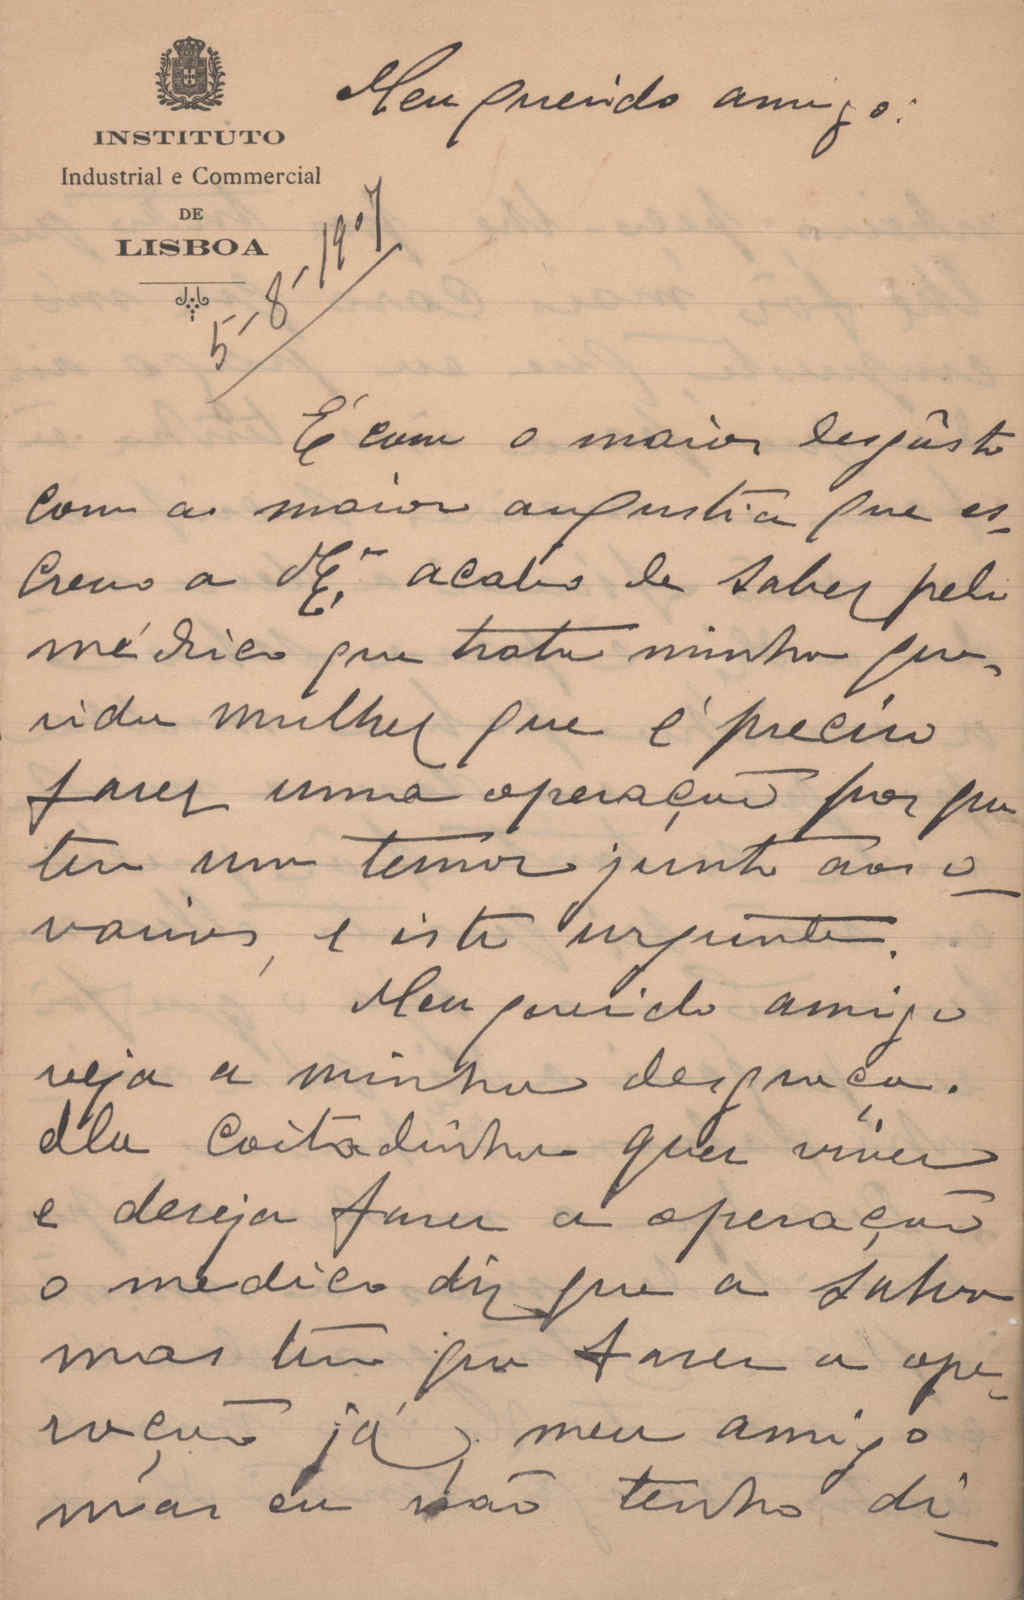 INSTITUTO
Industrial e Commercial
DE
LISBOA
5-8-1907
Meu querido amigo:
É com o maior desgôsto
com a maior angustia que es-
crevo a V. Ex.ª acabo de saber pelo
médico que trata minha que-
rida mulher que é preciso
faser uma operação por que
tem um temor junto aos o-
varios, e isto urgente.
Meu querido amigo
veja a minha desgraça.
Ella coitadinha quer viver
e deseja faser a operação
o medico diz que a salva
mas tem que faser a ope-
ração já, meu amigo
mas eu não tenho di-